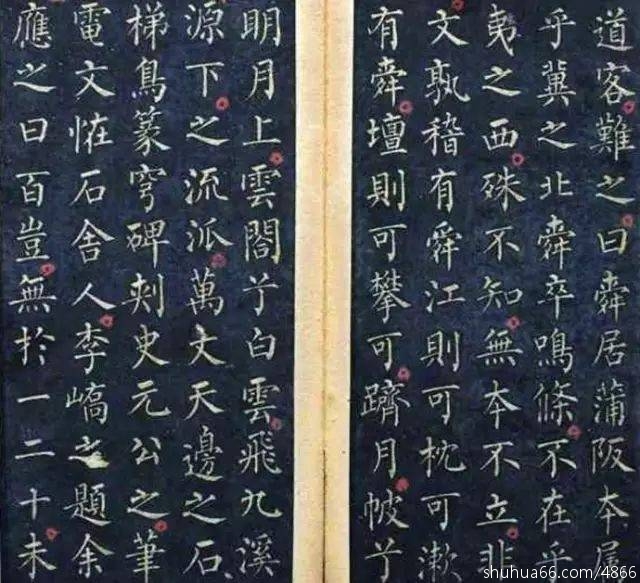 道客難之曰舜居蒲阪本屬
乎冀之北舜卒鳴條不在乎
夷之西殊不知無本不立非
文孰稽有舜江則可枕可漱
有舜壇則可攀可躋月帔兮
明月上雲閣兮白雲飛九溪
源下之流派萬丈天邊之石
梯鳥篆穹碑刾史元公之筆
電文恠石舍人李嶠之題余
應之曰百豈無於一二十未
shuhua66.com/4866